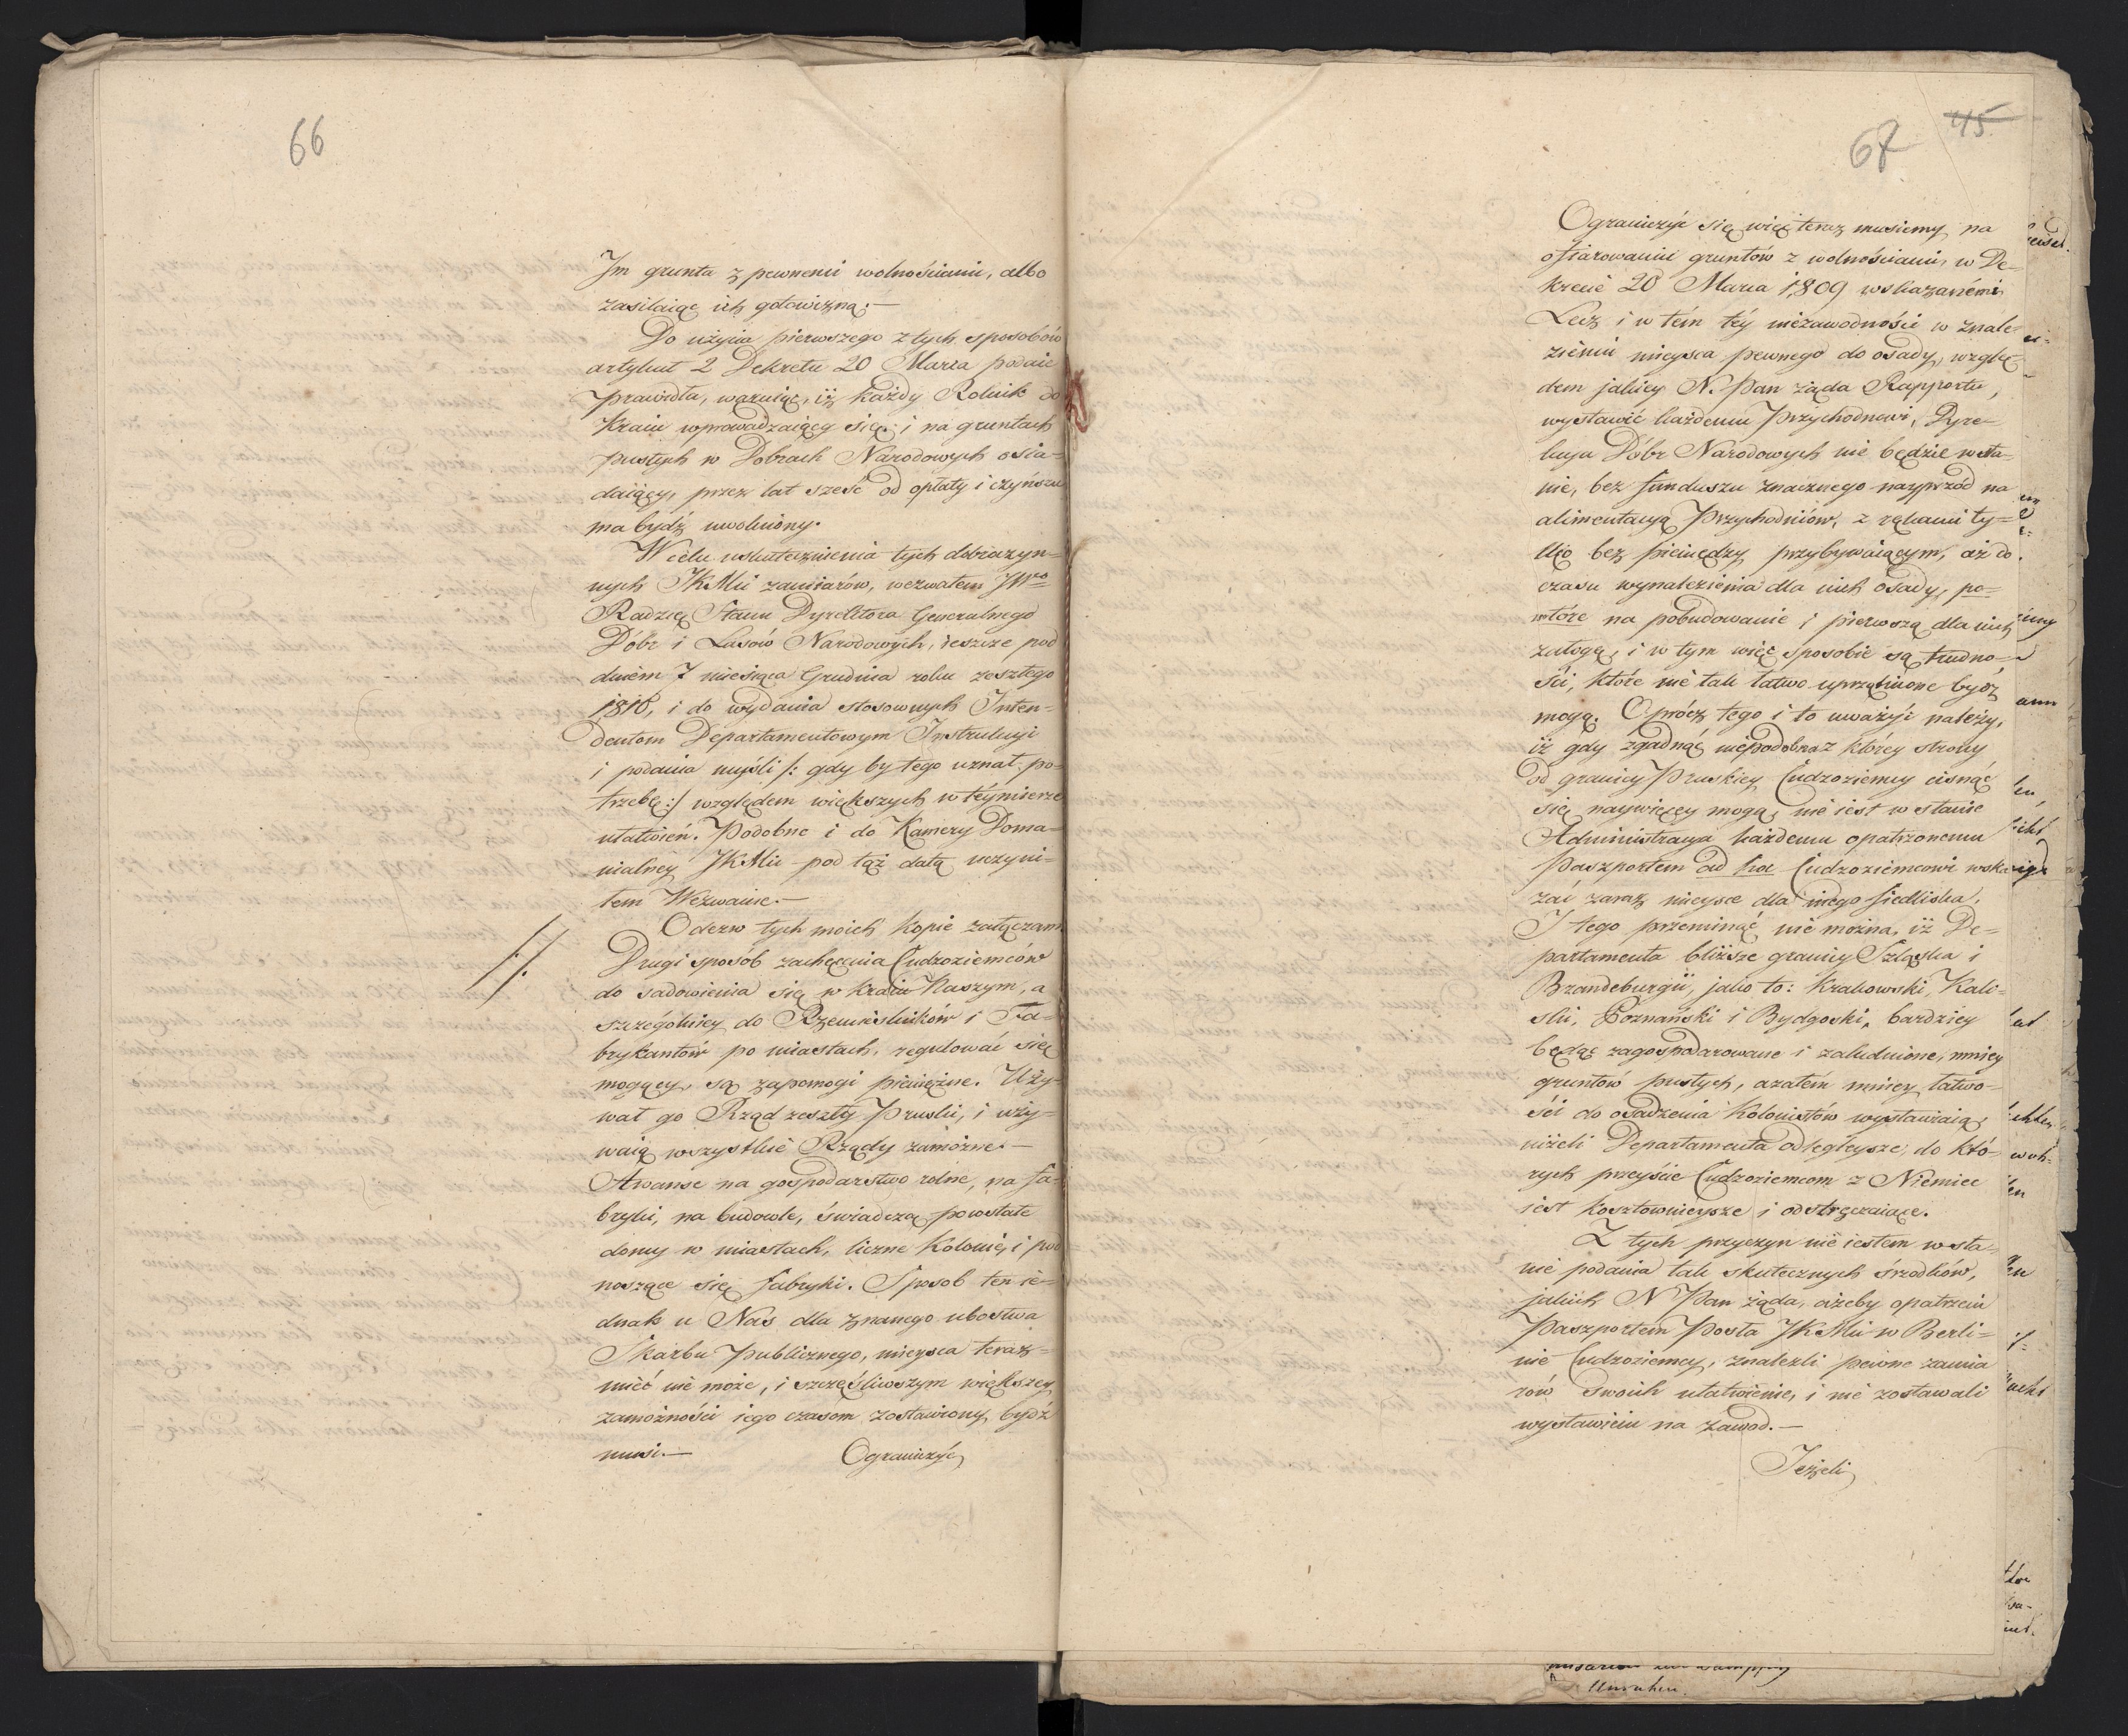 66
Jm grunta z pewnemi wolnościami, albo
zasilaiąc ich gotowizną.—
Do użycia pierwszego z tych sposobów
artykuł 2 Dekretu 20 Marca podaie
prawidła, waruiąc, iż każdy Rolnik do
Kraiu wprowadzaiący się i na gruntach
pustych w Dobrach Narodowych osia=
daiący, przez lat sześć od opłaty i czynszu
ma bydź uwolniony.
W celu uskutecznienia tych dobroczyn=
nych JKMci zamiarów, wezwałem JWgo
Radzcę Stanu Dyrektora Generalnego
Dóbr i Lasów Narodowych, ieszcze pod
dniem 7 miesiąca Grudnia roku zeszłego
1810, i do wydania stosownych Inten=
dentom Departamentowym Instrukcyi
i podania myśli /: gdy by tego uznał po=
trzebę :/ względem większych w téymierze
ułatwień. Podobne i do Kamery Doma=
nialney JKMci pod tąż datą uczyni=
łem Wezwanie.—
Odezw tych moich kopie załączam
/./. Drugi sposób zachęcenia Cudzoziemców
do sadowienia się w Kraiu Naszym, a
szczególniey do Rzemieślników i Fa=
brykantów po miastach, regulować się
mogący, są zapomogi pieniężne. Uży=
wał go Rząd zeszły Pruski, i uży=
waią wszystkie Rządy zamożne.—
Awanse na gospodarstwo rolne, na fa=
bryki, na budowle, świadczą powstałe
domy w miastach, liczne Kolonie, i pod
noszące się fabryki. Sposob ten ie=
dnak u Nas dla znanego ubostwa
Skarbu Publicznego, mieysca teraz
mieć nie może, i szczęśliwszym większey
zamożności iego czasom zostawiony bydź
musi.—
Ograniczyć
67 45
Ograniczyć się więc teraz musiemy na
ofiarowaniu gruntów z wolnościami w De=
krecie 20 Marca 1809 wskazanémi
Lecz i w tém téy niezawodności w znale=
zieniu mieysca pewnego do osady, wzglę=
dem jakiey N. Pan żąda Rapportu,
wystawić każdemu Przychodniowi, Dyre=
kcya Dóbr Narodowych nie będzie w sta=
nie, bez funduszu znacznego nayprzód na
alimentacyą Przychodniów, z rękami ty=
lko bez pieniędzy przybywaiącym, aż do
czasu wynalezienia dla nich osady, po=
wtóre na pobudowanie i pierwszą dla nich
załogę, i w tym więc sposobie są trudno=
ści, które nie tak łatwo uprzątnione bydź
mogą. Oprócz tego i to uważyć należy,
iż gdy zgadnąć niepodobna z któréy strony
od granicy Pruskiey Cudzoziemcy cisnąć
się naywięcéy mogą, nie iest w stanie
Administracya każdemu opatrzonemu
Paszportem ad hoc Cudzoziemcowi wska
zać zaraz mieysce dla niego siedliska.
I tego przeminąć nie można, iż De=
partamenta bliższe granicy Szląska i
Brandeburgii, jako to: Krakowski, Kali=
ski, Poznański i Bydgoski, bardziey
będąc zagospodarowane i zaludnione, mniey
gruntów pustych, a zatém mniey łatwo=
ści do osadzenia Kolonistów wystawiaią,
niżeli Departamenta odlegleysze, do któ=
rych przeyście Cudzoziemcom z Niemiec
iest kosztownieysze i odstręczaiące.
Z tych przyczyn nie iestem w sta=
nie podania tak skutecznych śrzodków,
jakich N Pan żąda, ażeby opatrzeni
Paszportem Posła JKMci w Berli=
nie Cudzoziemcy, znaleźli pewne zamia
rów swoich ułatwienie, i nie zostawali
wystawieni na zawod.—
Jeżeli